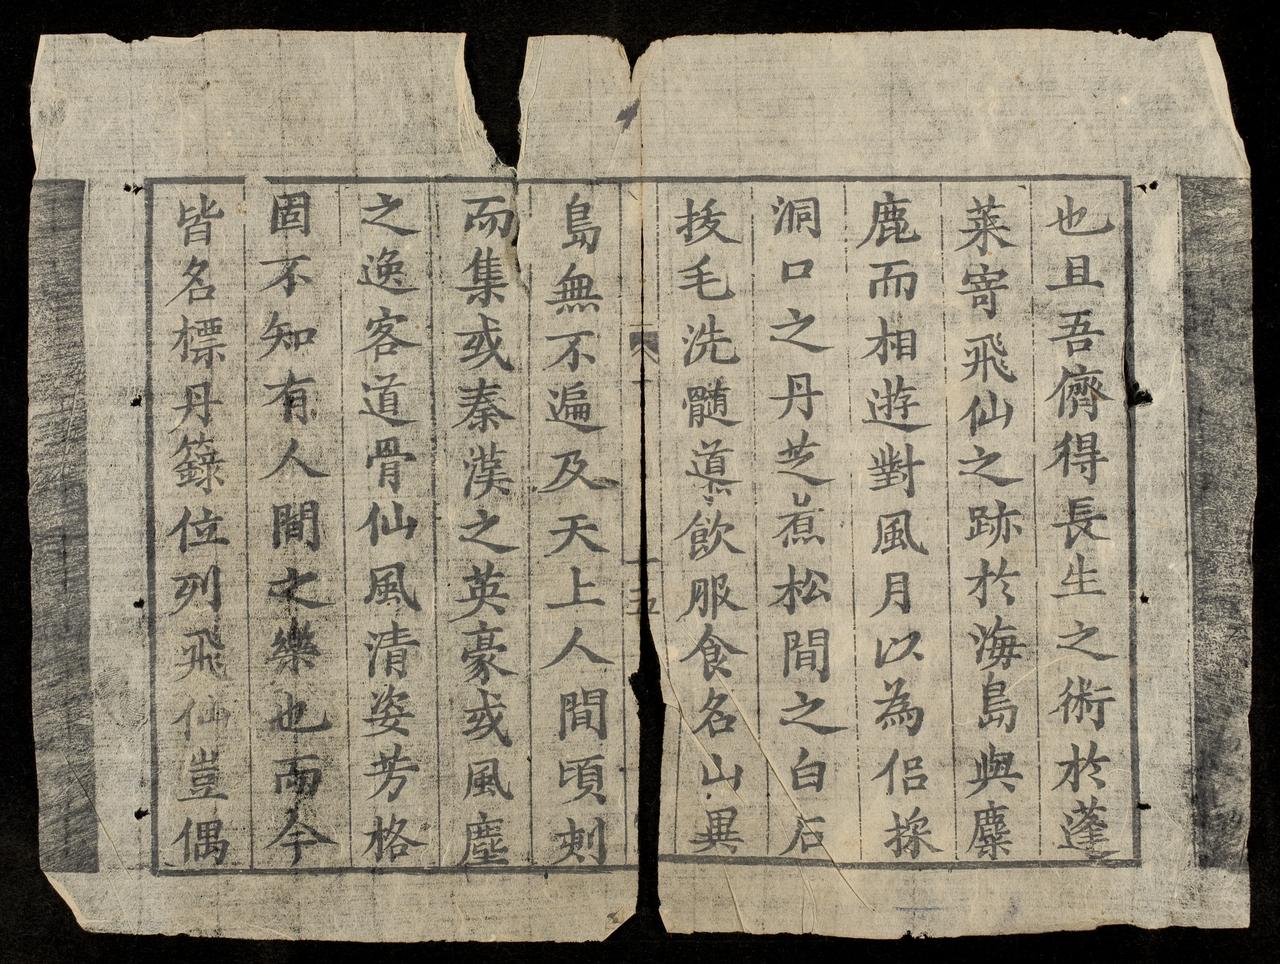 也且吾儕得長生之術於蓬
萊寄飛仙之跡於海島與麋
鹿而相遊對風月以為侶採
洞口之丹芝煮松間之白石
拔毛洗髓導飲服食名山異
十五
島無不遍及天上人間頃刻
而集或秦漢之英豪或風塵
之逸客道骨仙風清姿芳格
固不知有人間之樂也而今
皆名標丹籙位列飛仙豈偶